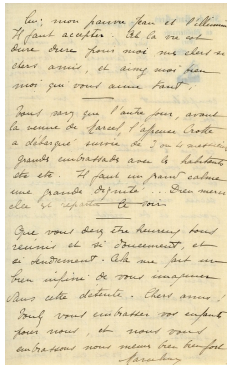 lui; mon pauvre Jean et
Il faut accepter. Ah la vie est
dure dure pour moi mes chers si
chers amis, et aimez moi bien
moi qui vous aime tant.
Vous savez que l'autre jour, avant
la venue de Marcel, l'affreuse
a débarqué suivie de
grands embrassades avec les habitants
été etc. Il faut un grand calme
une grande dignité... Dieu merci
elle est repartie le soir.
Que vous devez être heureux tous
réunis et si doucement, et
si tendrement. Cela me fait un
bien infini de vous imaginer
dans cette détente. Chers amis!
embrasser vos enfants
pour nous, et nous vous
embrassons nous même bien fort